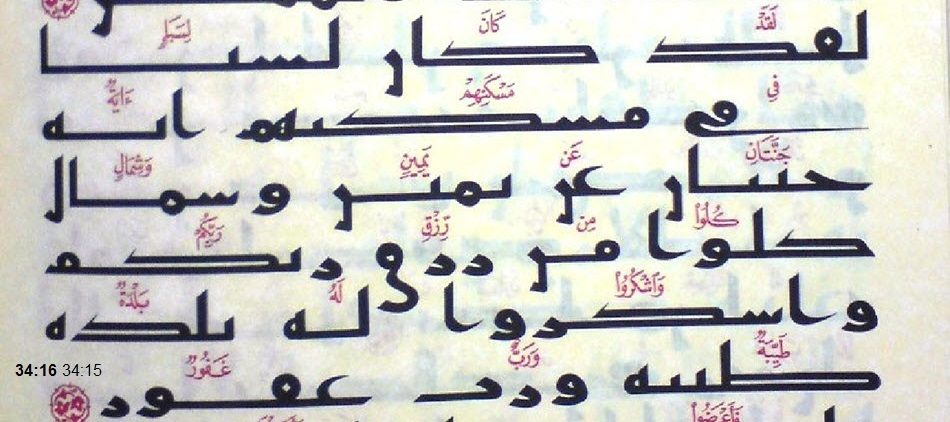 لَقَدْ كَانَ لِسَبَإٍ
لقد كان لسبا
فِي مَسْكَنِهِمْ ءَايَةٌ
في مسكنهم ايه
جَنَّتَانِ عَن يَمِينٍ وَشِمَالٍ
جنتان عن يمين وشمال
كُلُوا۟ مِن رِّزْقِ رَبِّكُمْ
كلوا من رزق ربكم
وَاشْكُرُوا۟ لَهُ بَلْدَةٌ
واشكروا له بلده
طَيِّبَةٌ وَرَبٌّ غَفُورٌ
34:16 34:15
طيبه ورب غفور
فَأَعْرَضُوا۟